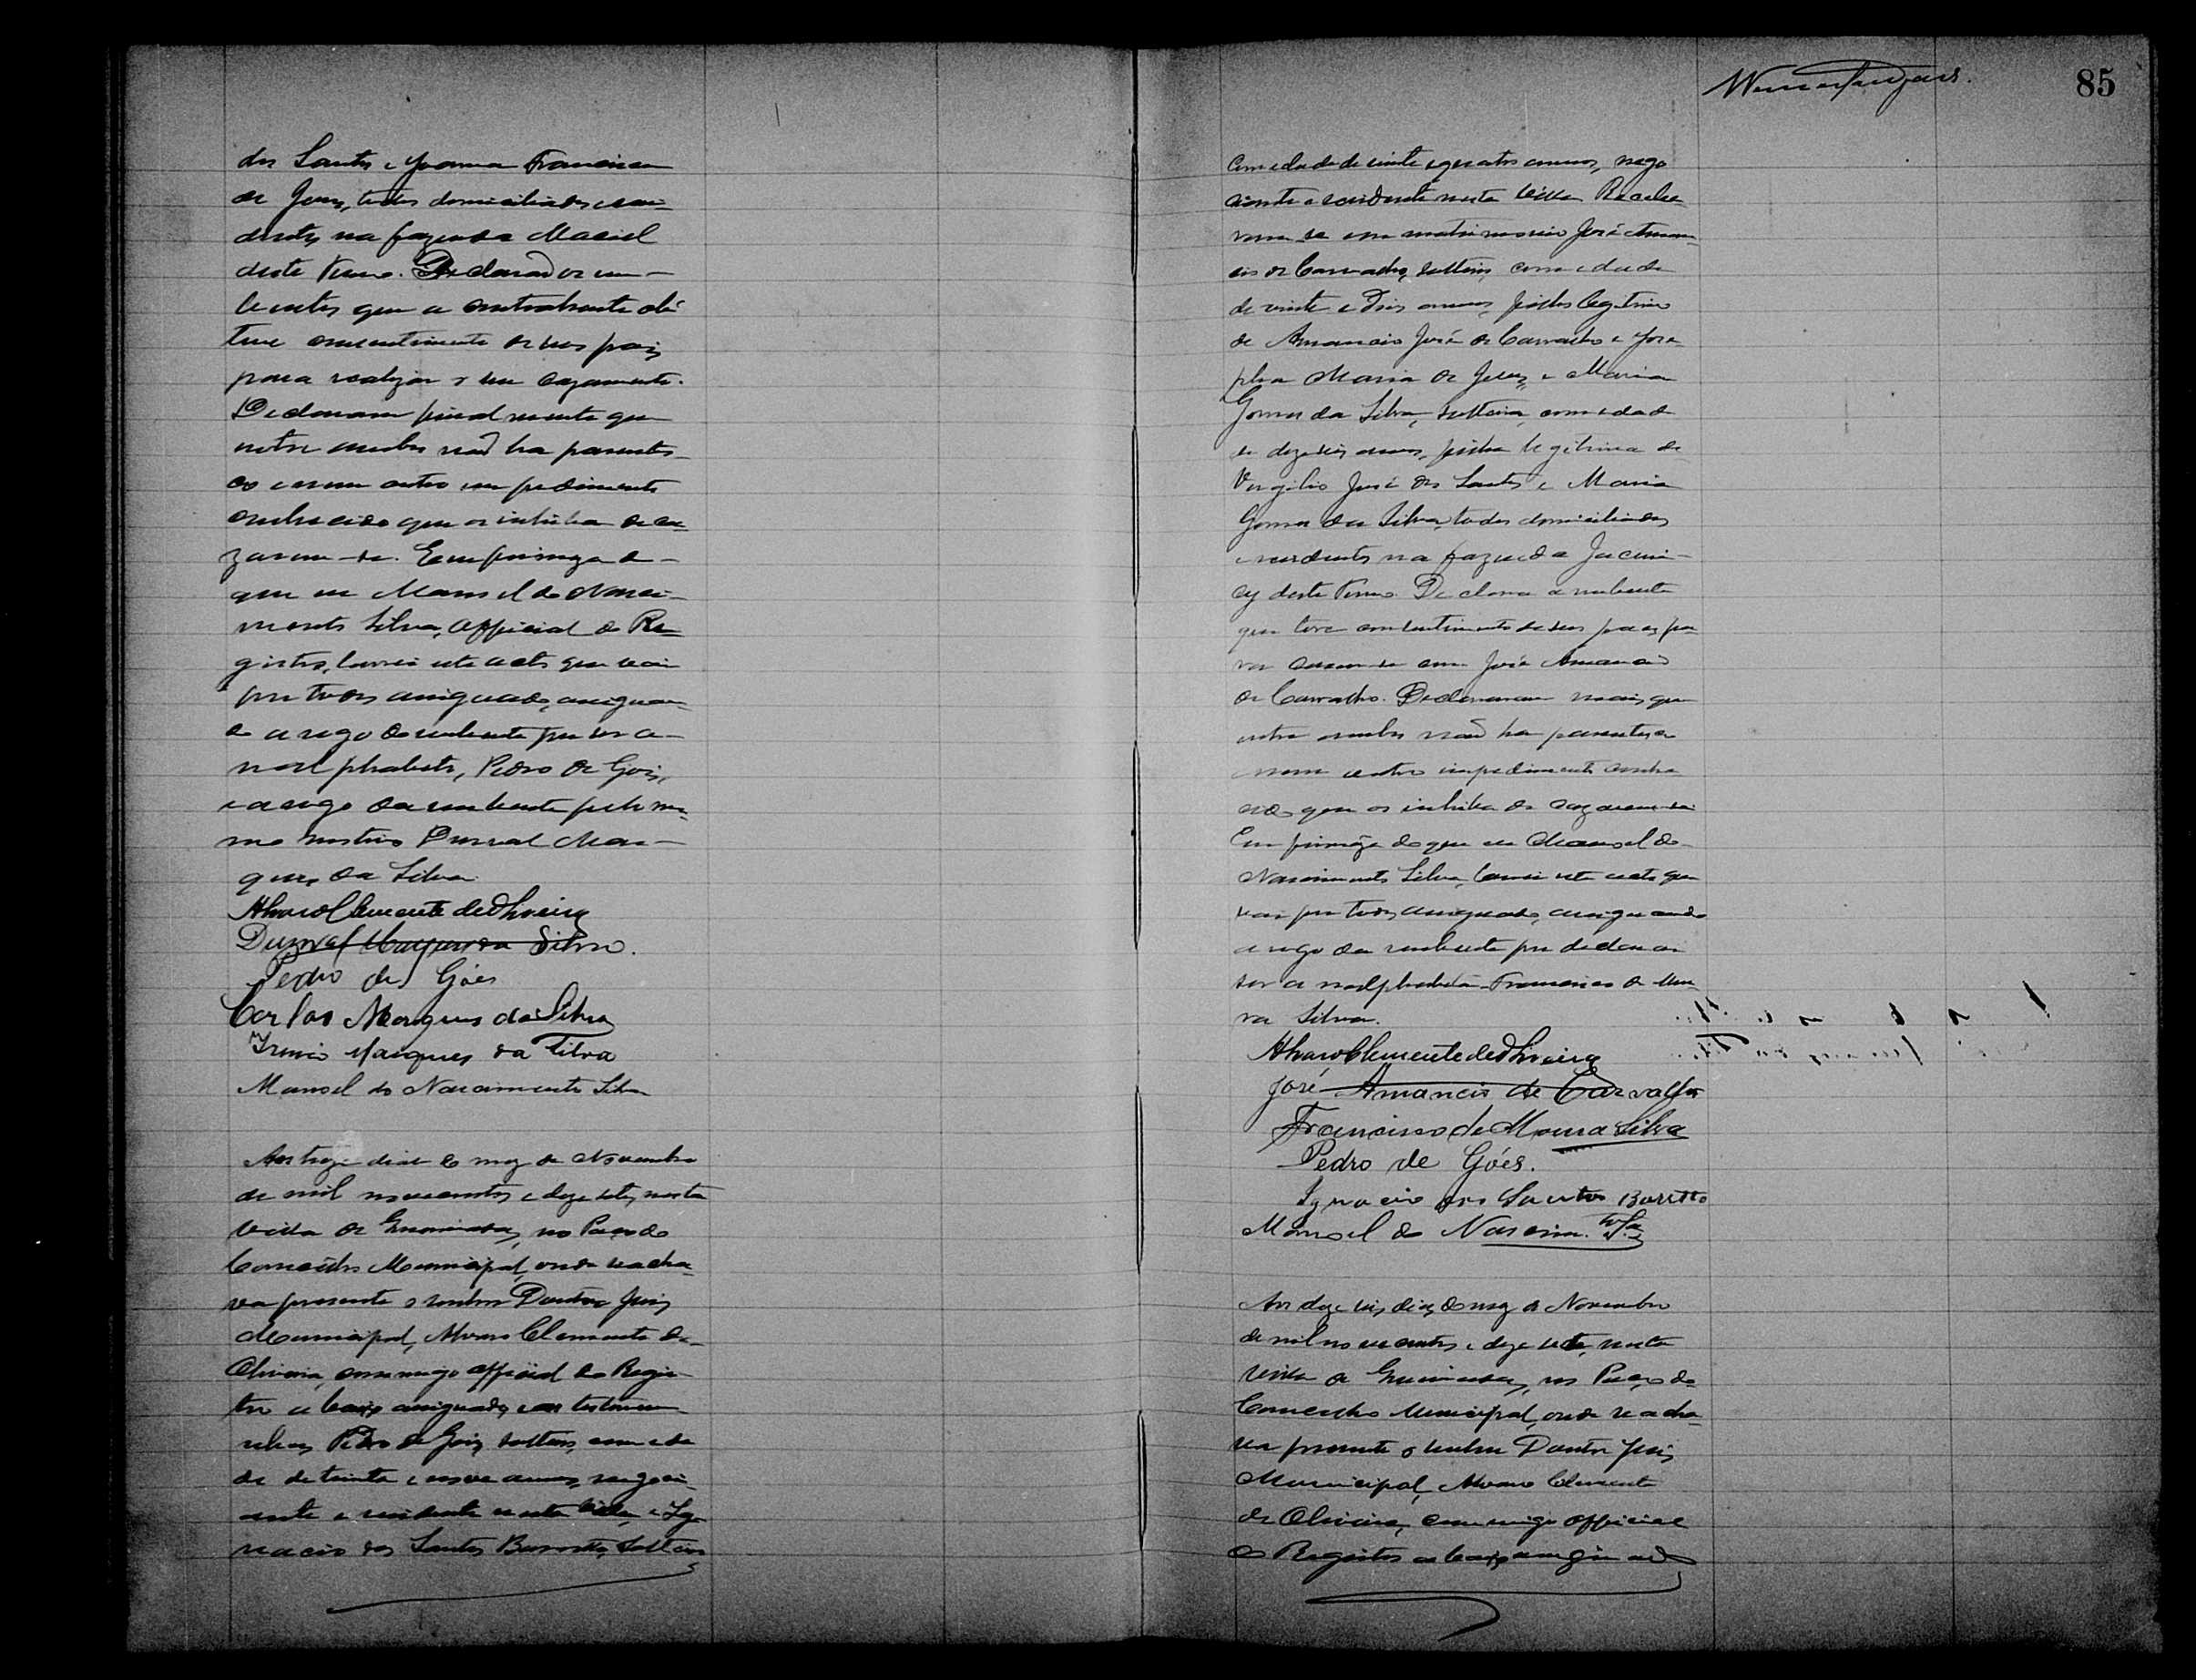 dos Santos e Joanna Francisca
de Jesus, todos domiciliados e resi-
dentes na fazenda Maciel
deste Termo. Declarao os nu-
bentes que a contrahente ob-
teve consentimento de seus pais
para realizar o seu cazamento.
Declararam finalmente que
entre ambos não ha parentes-
co e nem outro impedimento
conhecido que os inhiba de ca-
zarem-se. Em firmeza do
que eu Manoel do Nasci-
mento Silva, Official do Re-
gistro, lavrei este acto que vai
por todos assignado, assignan-
do a rogo do nubente por ser a-
nalphabeto, Pedro de Góis,
e a rogo da nubente pelo mes-
mo motivo Durval Mar-
ques da Silva.
Alvaro Clemente de Oliveira
Durval Marques da Silva.
Pedro de Góes
Carlos Marques da Silva
Irenio Marques da Silva
Manoel do Nascimento Silva
Aos treze dias do mez de Novembro
de mil novecentos e dezesete, nesta
Villa de Queimadas, no Paço do
Conselho Municipal, onde se acha-
va presente o senhor Doutor Juiz
Municipal, Alvaro Clemente de
Oliveira, commigo official do Regis-
tro abaixo assignado, e as testemu-
nhas Pedro de Góis, solteiro, com eda-
de de trinta e nove annos, negoci-
ante e residente nesta Villa, e Ig-
nacio dos Santos Barretto, solteiro
85
com edade de vinte e quatro annos, nego
ciante e residente nesta Villa. Recebe-
ram-se em matrimonio José Aman-
cio de Carvalho, solteiro, com edade
de vinte e dois annos, filho legitimo
de Amancio José de Carvalho e Jose-
pha Maria de Jesus, e Maria
Gomes da Silva, solteira, com edade
de dezeseis annos, filha legitima de
Virgilio José dos Santos e Maria
Gomes da Silva, todos domiciliados
e residentes na fazenda
deste Termo. Declara a nubente
que teve consentimento de seus paes pa-
ra casar-se com José Amancio
de Carvalho. Declararam mais que
entre ambos não ha parentesco
e nem outro impedimento conhe-
cido que os inhiba de cazarem-se.
Em firmeza do que eu Manoel do
Nascimento Silva, lavrei este acto que
vai por todos assignado, assignando
a rogo da nubente por declarar
ser analphabeta Francisco de Mou-
ra Silva.
Alvaro Clemente de Oliveira
José Amancio de Carvalho
Francisco de Moura Silva
Pedro de Góes.
Ignacio dos Santos Barretto
Manoel do Nascim.to S.a
Aos dezeseis dias do mez de Novembro
de mil novecentos e dezesete, nesta
Villa de Queimadas, no Paço do
Conselho Municipal, onde se acha-
va presente o senhor Doutor Juiz
Municipal, Alvaro Clemente
de Oliveira, commigo official
do Registro abaixo assignado